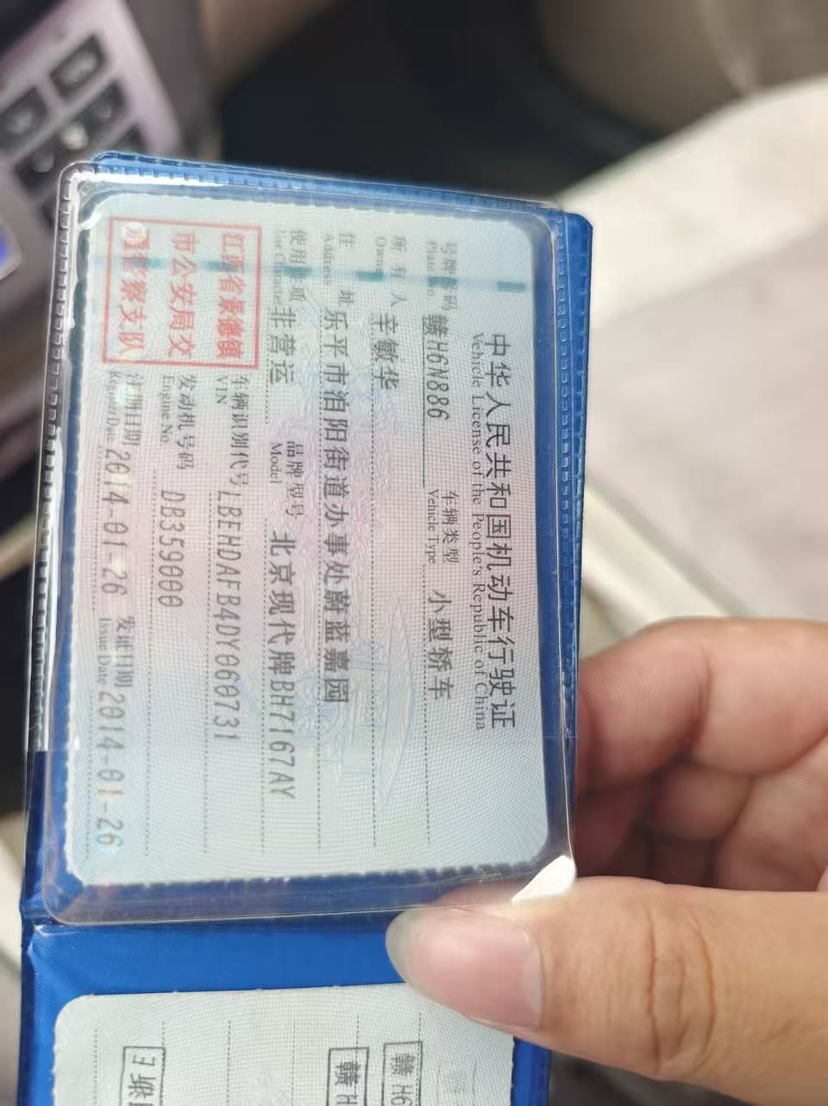 中华人民共和国机动车行驶证
Vehicle License of the People's Republic of China
号牌号码 赣H6N886 车辆类型 小型轿车
Plate No. Vehicle Type
所有人 辛敏华
Owner
住址 乐平市洎阳街道办事处蔚蓝嘉园
Address
使用性质 非营运 品牌型号 北京现代牌BH7167AY
Use Character Model
江西省景德镇
市公安局交
通警察支队
车辆识别代号 LBEHDAFB4DY060731
VIN
发动机号码 DB359000
Engine No.
注册日期 2014-01-26 发证日期 2014-01-26
Register Date Issue Date
赣H6
赣H